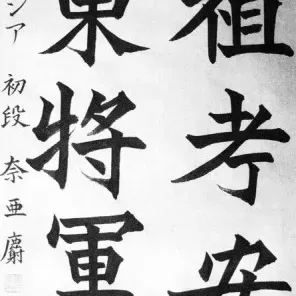 祖考安
東將軍
シア 初段 奈亜麝